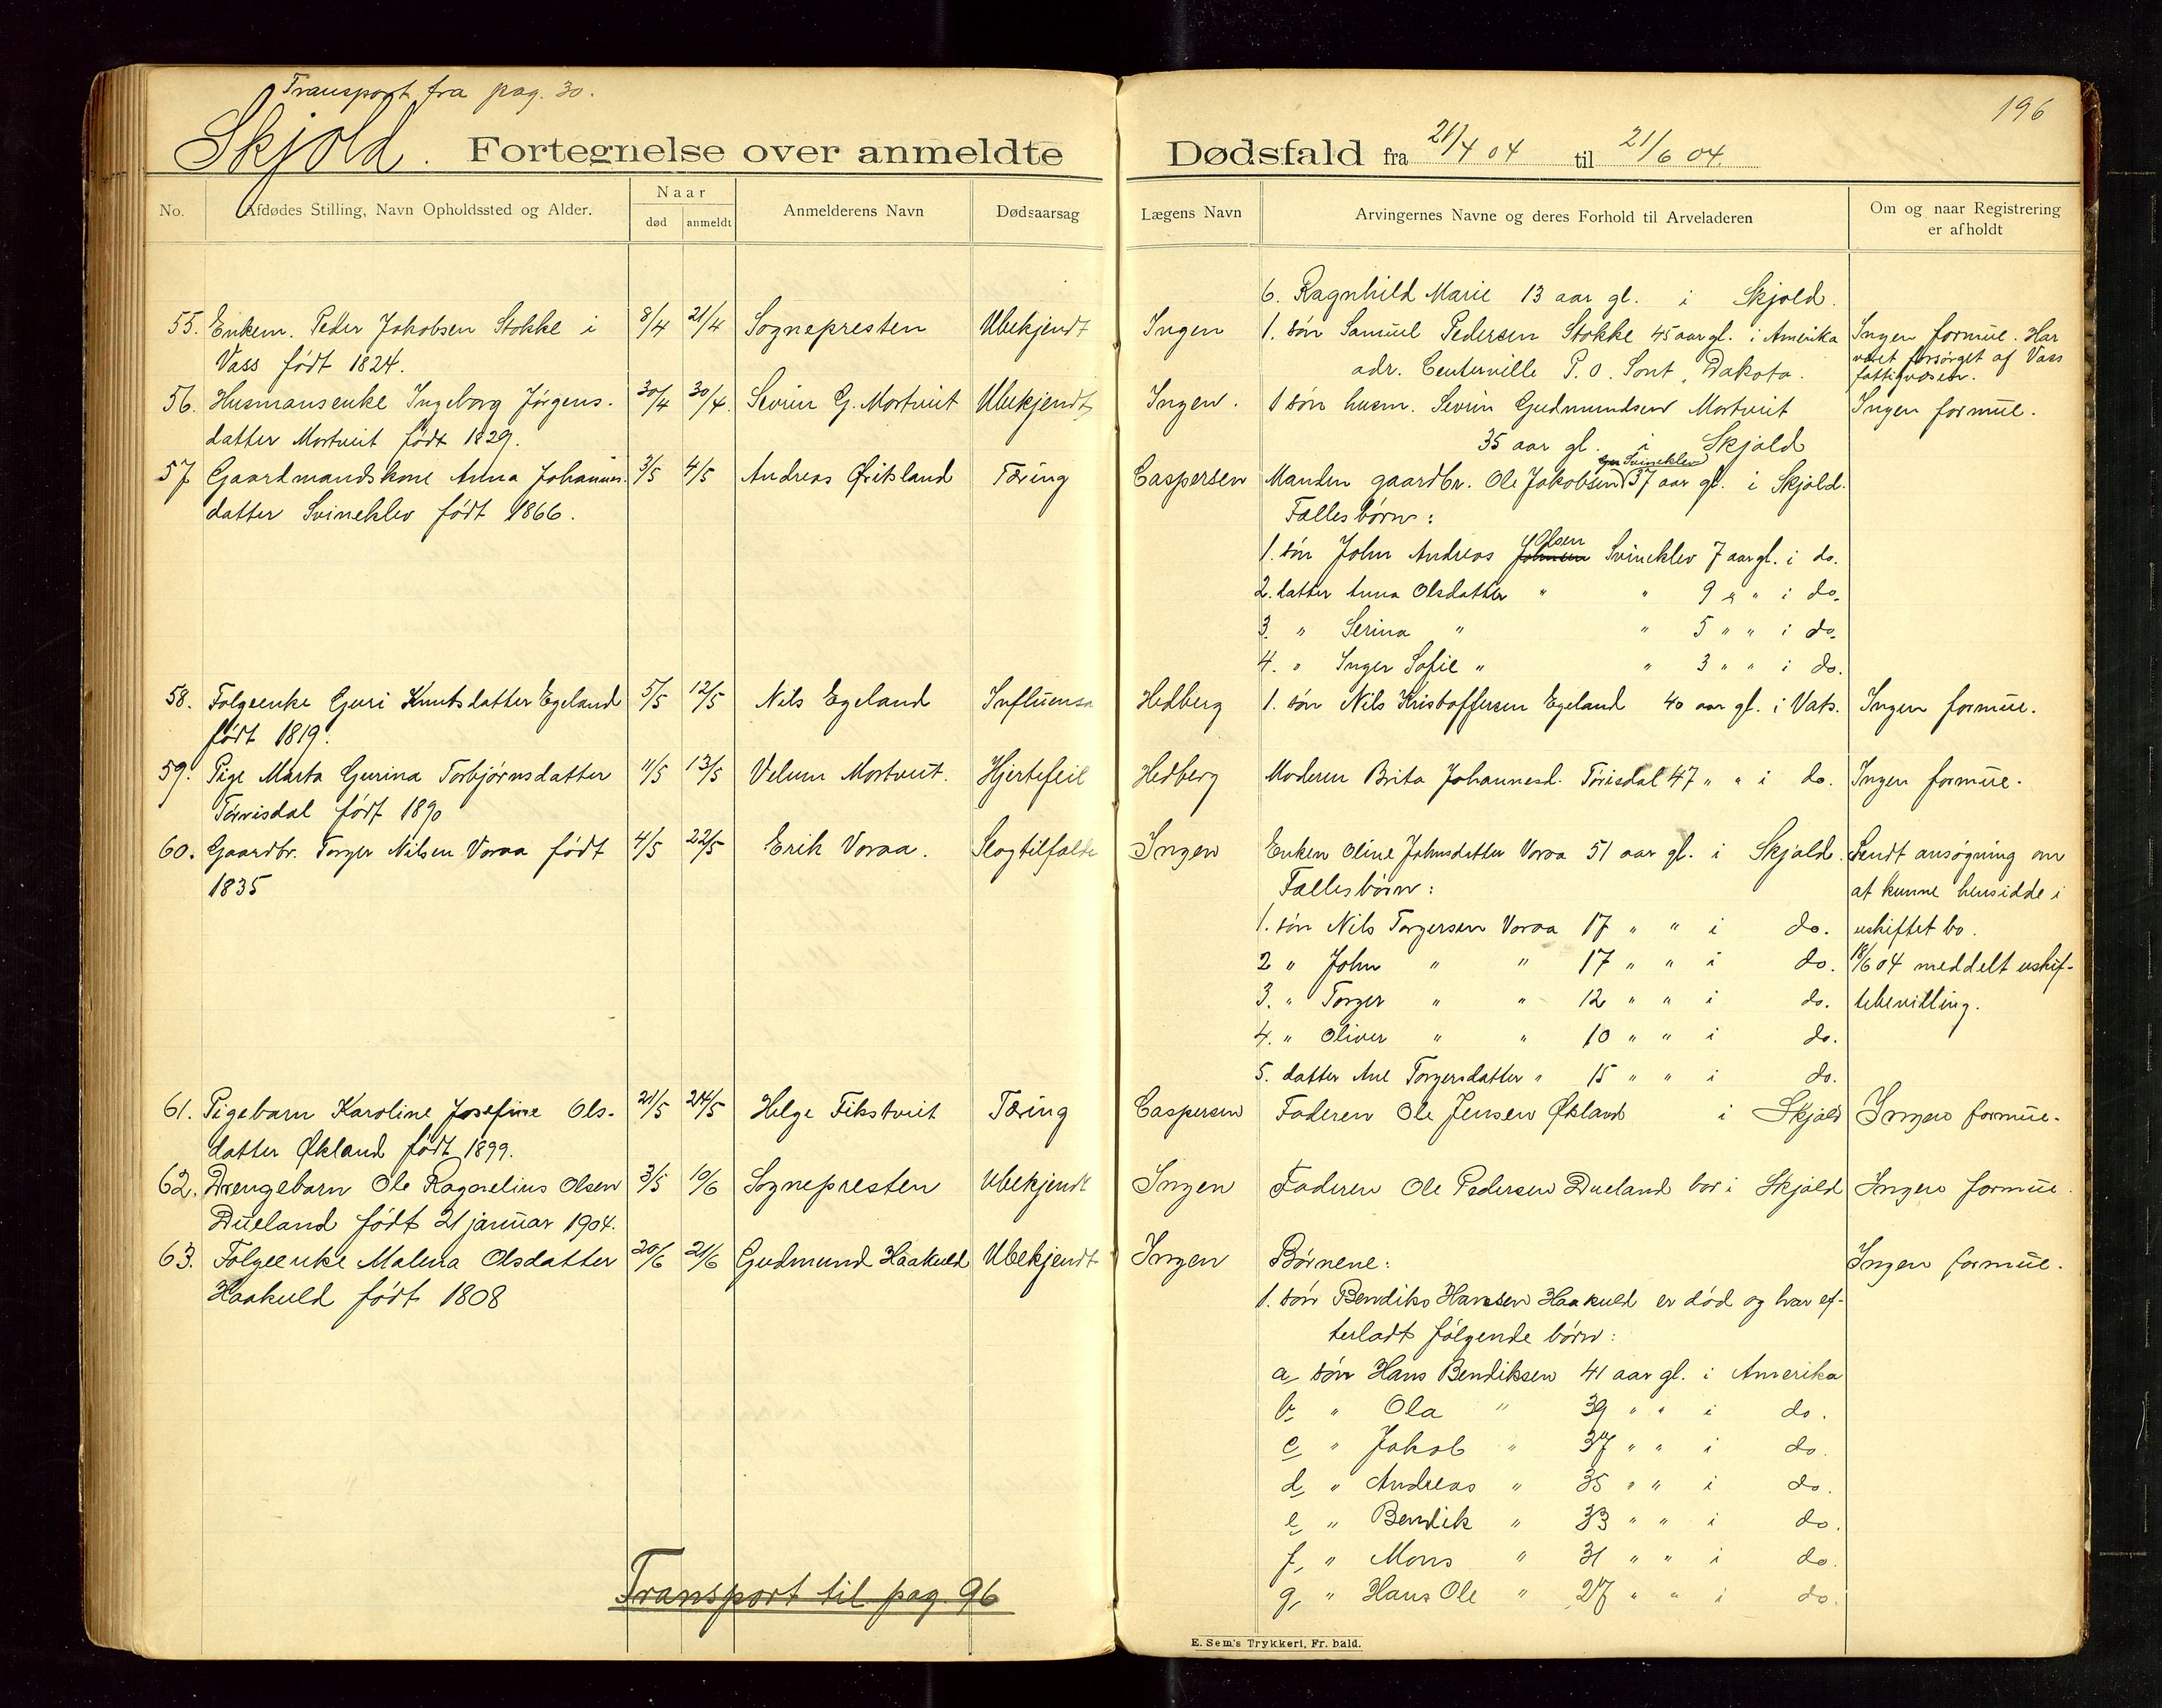 Transport fra pag. 30.
196
Skjold. Fortegnelse over anmeldte Dødsfald fra 21/4 04 til 21/6 04.
No.
Afdødes Stilling, Navn Opholdssted og Alder.
Naar
død
anmeldt
Anmelderens Navn
Dødsaarsag
Lægens Navn
Arvingernes Navne og deres Forhold til Arveladeren
Om og naar Registrering
er afholdt
6. Ragnhild Marie 13 aar gl. i Skjold.
55. Enkem. Peder Jakobsen Stokke i 8/4 21/4 Sognepresten Ubekjendt Ingen 1. søn Samuel Pedersen Stokke 45 aar gl. i Amerika Ingen formue. Har
Vass født 1824. adr. Centerville P.O. Sout, Dakota. været forsørget af Vass
fattigvæsen.
56. Husmansenke Ingeborg Jørgens- 30/4 30/4. Sevrin G. Mortveit Ubekjendt Ingen. 1 søn husm. Sevrin Gudmundsen Mortveit Ingen formue.
datter Mortveit født 1829. 35 aar gl. i Skjold
Svineklev
57 Gaardmandskone Anna Johannes- 3/5 4/5 Andreas Øritsland Tæring Caspersen Manden gaardbr. Ole Jakobsen 37 aar gl. i Skjold.
datter Svineklev født 1866. Fællesbørn:
Olsen
1. søn John Andreas Johnsen Svineklev 7 aar gl. i do.
2. datter Anna Olsdatter " " 9 " " i do.
3. " Serina " " 5 " " i do.
4. " Inger Sofie " " 3 " " i do.
58. Folgeenke Guri Knutsdatter Egeland 5/5 12/5 Nils Egeland Influensa Hedberg 1. søn Nils Kristoffersen Egeland 40 aar gl. i Vats. Ingen formue.
født 1819.
59. Pige Marta Gurina Torbjørnsdatter 11/5 13/5 Velum Mortveit. Hjertefeil Hedberg Moderen Brita Johannesd. Tørisdal 47 " " i do. Ingen formue.
Tørrisdal født 1890
60. Gaardbr. Torger Nilsen Voraa født 4/5 22/5 Erik Voraa. Slagtilfælde Ingen Enken Oline Johnsdatter Voraa 51 aar gl. i Skjold. Sendt ansøgning om
1835 Fællesbørn: at kunne hensidde i
1. søn Nils Torgersen Voraa 17 " " i do. uskiftet bo.
2 " John " " 17 " " i do. 18/6 04 meddelt uskif-
3. " Torger " " 12 " " i do. tebevilling.
4. " Oliver " " 10 " " i do.
5. datter Ane Torgersdatter " 15 " " i do.
61. Pigebarn Karoline Josefine Ols- 21/5 24/5 Helge Fikstveit Tæring Caspersen Faderen Ole Jensen Økland i Skjold Ingen formue.
datter Økland født 1899.
62. Drengebarn Ole Ragnelius Olsen 3/5 10/6 Sognepresten Ubekjendt Ingen Faderen Ole Pedersen Dueland bor i Skjold Ingen formue.
Dueland født 21 januar 1904.
63. Folgeenke Malena Olsdatter 20/6 21/6 Gudmund Haakuld Ubekjendt Ingen Børnene: Ingen formue.
Haakuld født 1808 1. søn Bendiks Hansen Haakuld er død og har ef-
terladt følgende børn:
a, søn Hans Bendiksen 41 aar gl. i Amerika
b, " Ola " 39 " " i do.
c, " Jakob " 37 " " i do.
d, " Andreas " 35 " " i do.
e, " Bendik " 33 " " i do.
f, " Mons " 31 " " i do.
g, " Hans Ole " 27 " " i do.
Transport til pag. 96
E. Sem's Trykkeri, Fr. hald.